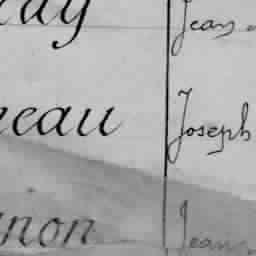 ray Jean
reau Joseph
non Jean